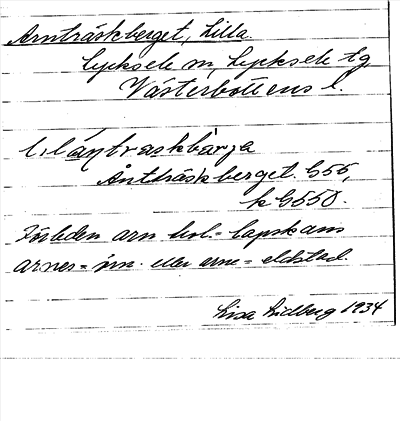 Arnträskberget, Lilla
Lycksele sn, Lycksele tg,
Västerbottens l.
antraskbärja
Åntträsk berget. G55,
k G550.
Förleden arn hol= lapskans
arnes= örn. eller arne= eldstad
Lisa Lidberg 1934